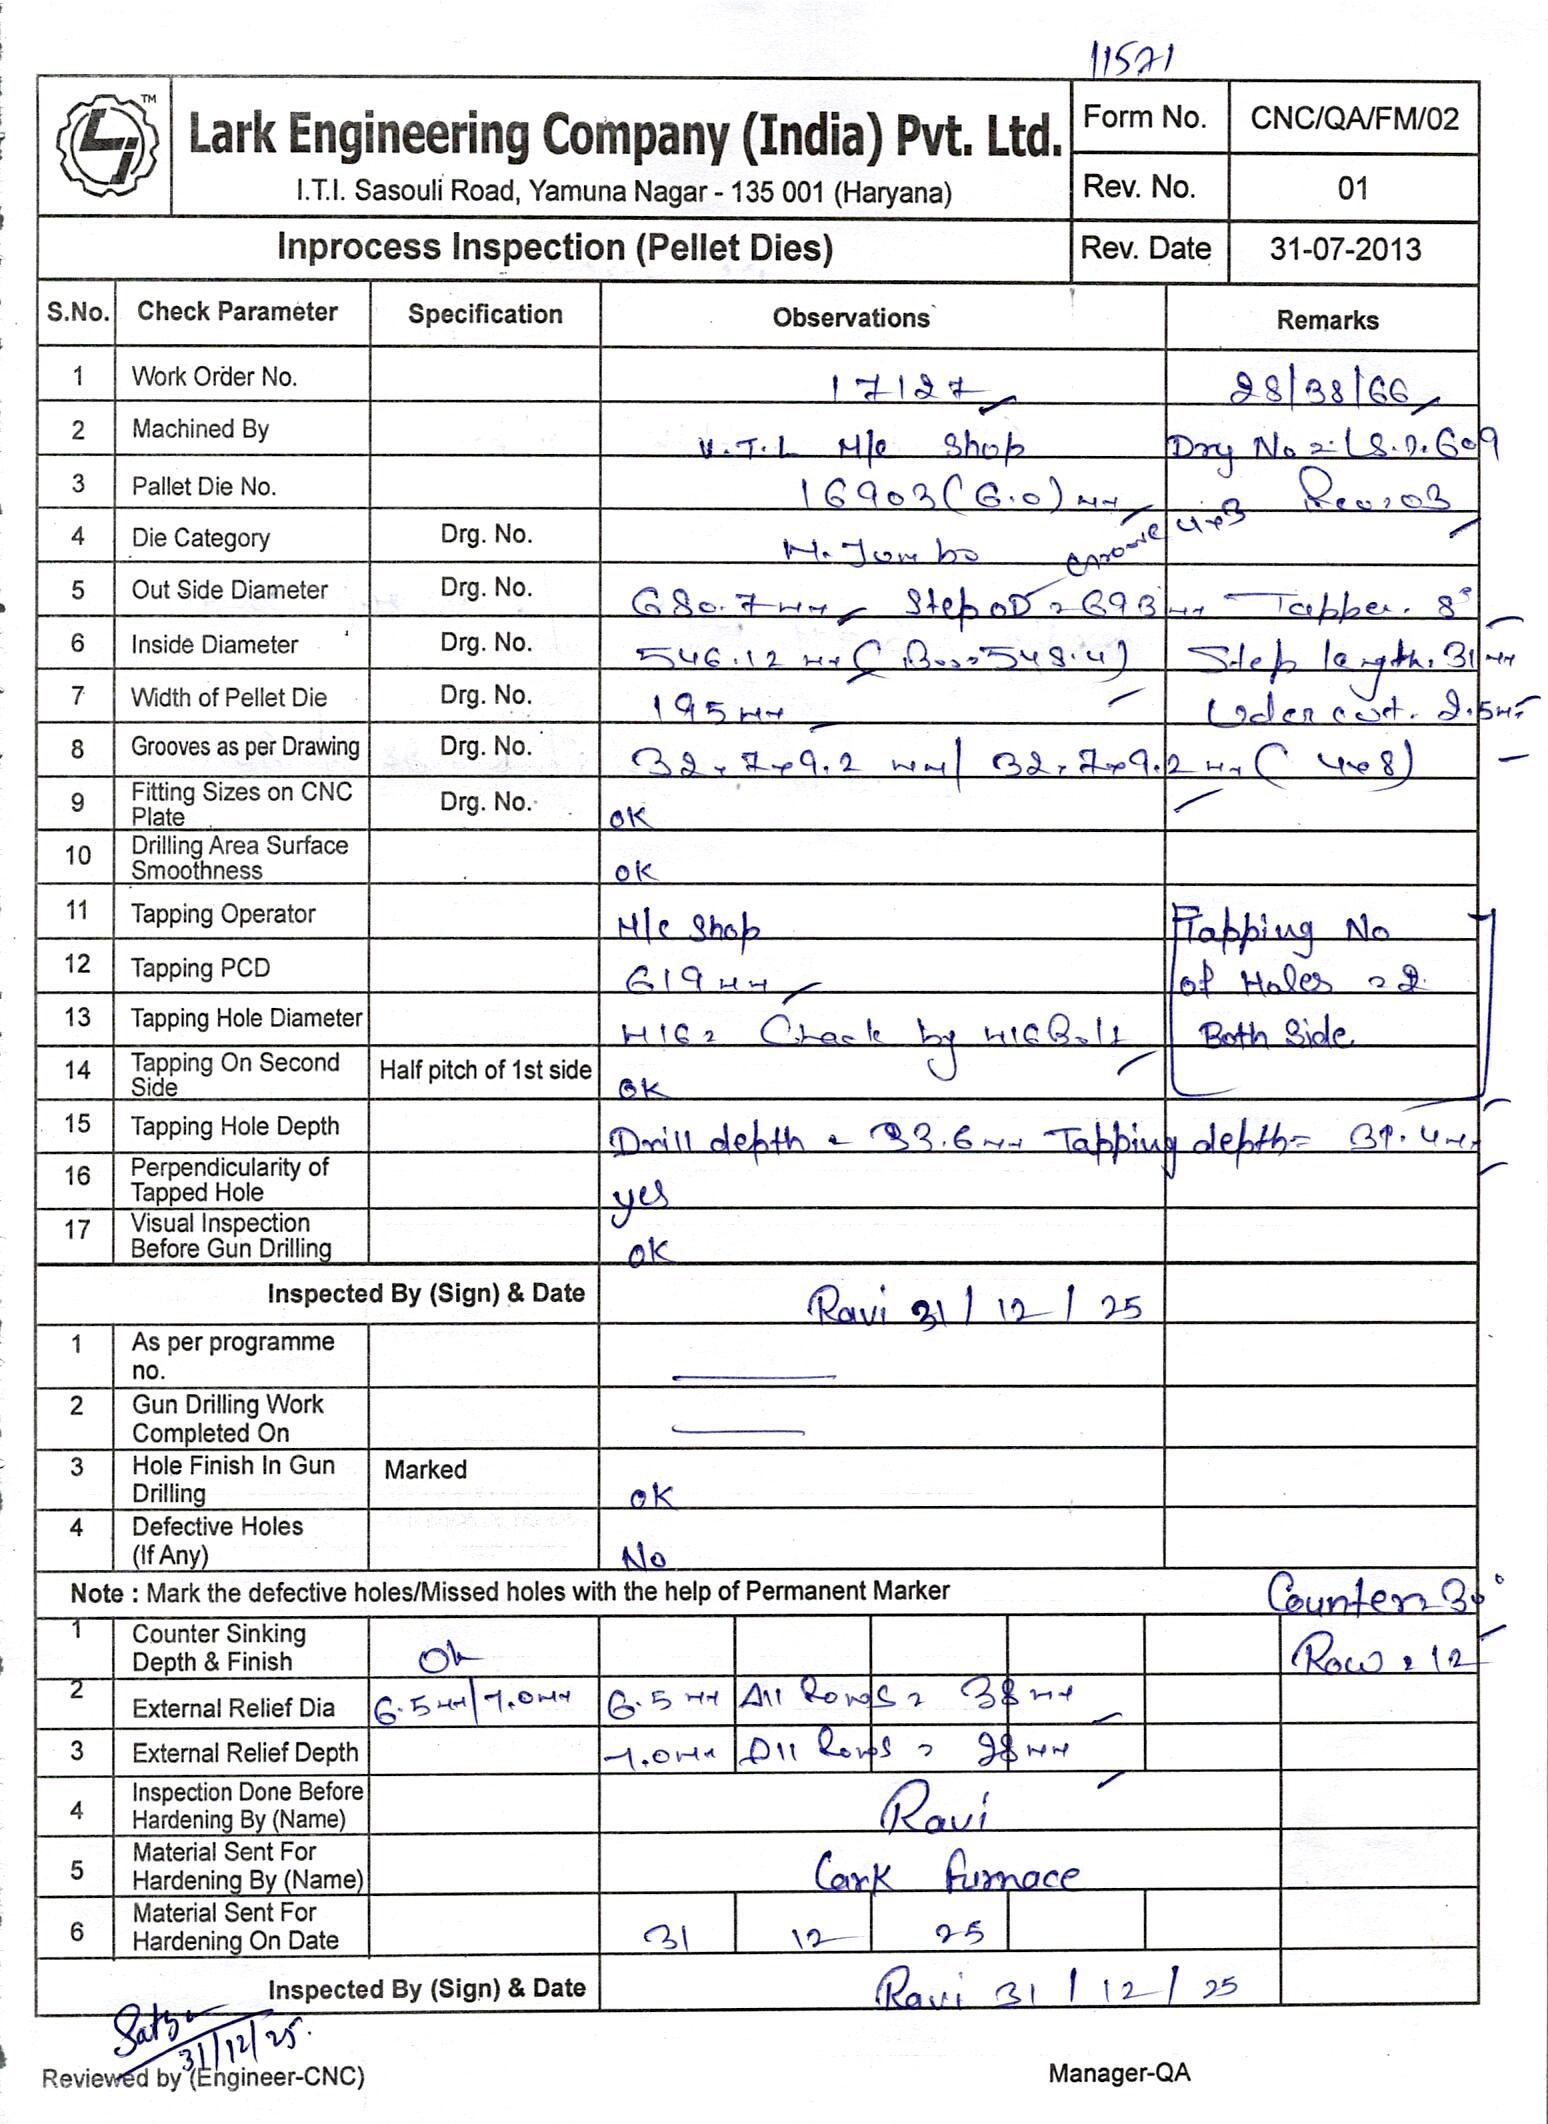 11571
LJ TM
Lark Engineering Company (India) Pvt. Ltd.
I.T.I. Sasouli Road, Yamuna Nagar - 135 001 (Haryana)
Form No. CNC/QA/FM/02
Rev. No. 01
Inprocess Inspection (Pellet Dies) Rev. Date 31-07-2013
S.No. Check Parameter Specification Observations Remarks
1 Work Order No. 17127 28/38/66
2 Machined By V.T.L M/c Shop Drg No = LS.D.609
3 Pallet Die No. 16903 (6.0) mm Rev = 03
4 Die Category Drg. No. M. Jumbo 4x3
5 Out Side Diameter Drg. No. 680.7 mm Step OD = 693 mm Tapper. 8°
6 Inside Diameter Drg. No. 546.12 mm (Bore=548.4) Step length. 31 mm
7 Width of Pellet Die Drg. No. 195 mm Under cut. 2.5 mm
8 Grooves as per Drawing Drg. No. 32 x 7 x 9.2 mm / 32 x 7 x 9.2 mm (4x8)
9 Fitting Sizes on CNC Plate Drg. No. OK
10 Drilling Area Surface Smoothness OK
11 Tapping Operator M/c Shop Tapping No
12 Tapping PCD 619 mm of Holes = 2
13 Tapping Hole Diameter M16 = Check by M16 Bolt Both Side
14 Tapping On Second Side Half pitch of 1st side OK
15 Tapping Hole Depth Drill depth = 33.6 mm Tapping depth = 31.4 mm
16 Perpendicularity of Tapped Hole yes
17 Visual Inspection Before Gun Drilling OK
Inspected By (Sign) & Date Ravi 31/12/25
1 As per programme no.
2 Gun Drilling Work Completed On
3 Hole Finish In Gun Drilling Marked OK
4 Defective Holes (If Any) No
Note : Mark the defective holes/Missed holes with the help of Permanent Marker Counter = 30°
1 Counter Sinking Depth & Finish Ok Row = 12
2 External Relief Dia 6.5 mm/7.0 mm 6.5 mm All Rows = 38 mm
3 External Relief Depth 7.0 mm All Rows = 28 mm
4 Inspection Done Before Hardening By (Name) Ravi
5 Material Sent For Hardening By (Name) Lark Furnace
6 Material Sent For Hardening On Date 31 12 25
Inspected By (Sign) & Date Ravi 31/12/25
31/12/25.
Reviewed by (Engineer-CNC) Manager-QA